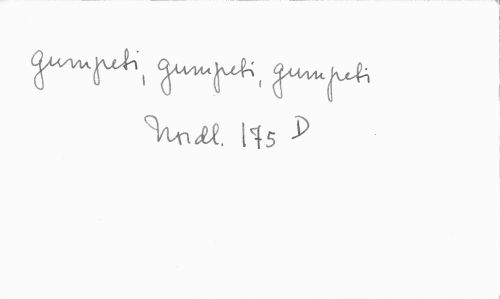 gumpeti, gumpeti, gumpeti
Nordl. 175 D